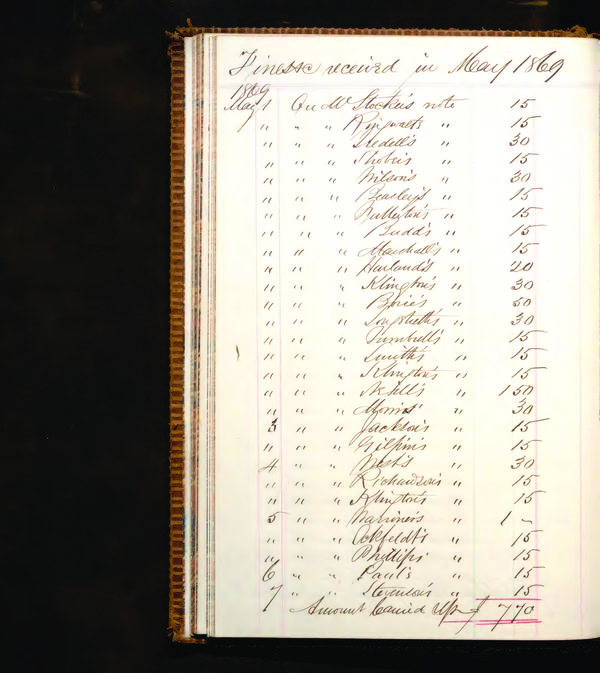 Fines &c received in May 1869
1869
May 1 On Mr Stocker's note 15
" " " Ringwalt's " 15
" " " Iredell's " 30
" " " Shober's " 15
" " " Wilson's " 30
" " " Beasley's " 15
" " " Fullerton's " 15
" " " Budd's " 15
" " " Marshall's " 15
" " " Harland's " 20
" " " Klington's " 30
" " " Borie's " 50
" " " Longstreth's " 30
" " " Turnbull's " 15
" " " Smith's " 15
" " " Klington's " 15
" " " Neill's " 1 50
" " " Morris' " 30
3 " " Jackson's " 15
" " " Gilpin's " 15
4 " " West's " 30
" " " Richardson's " 15
" " " Klington's " 15
5 " " Warriner's " 1 "
" " " Eckfeldt's " 15
" " " Phillips' " 15
6 " " Paul's " 15
7 " " Stevenson's " 15
Amount Carried Up $ 7 70